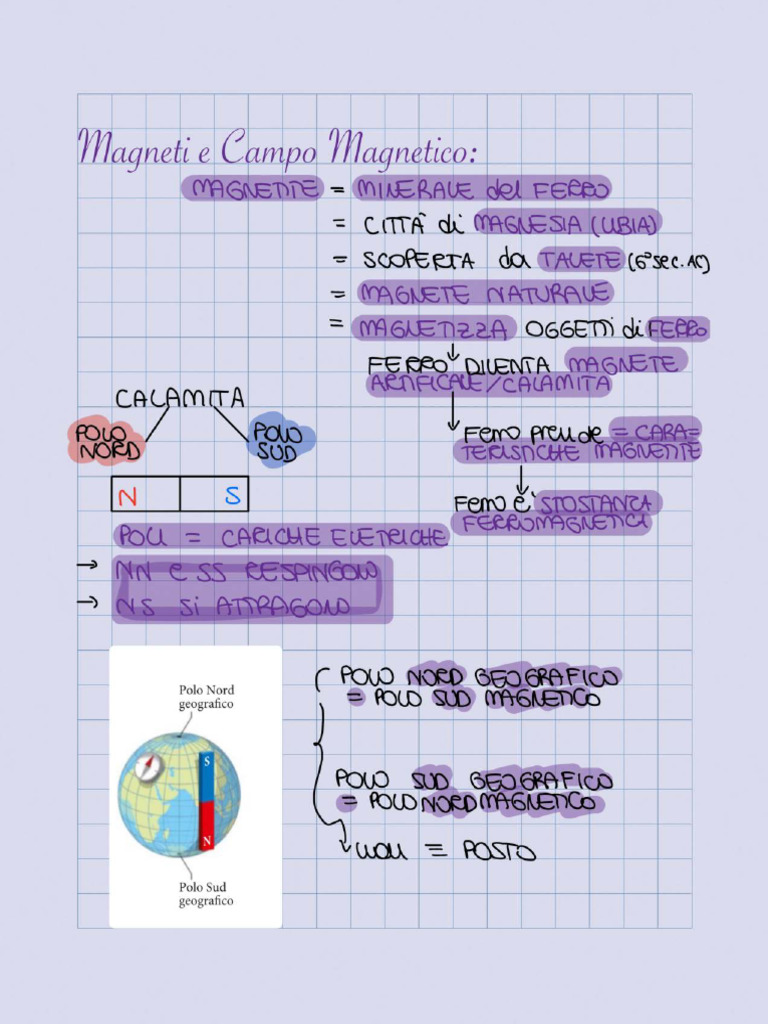 Magneti e Campo Magnetico:
MAGNETITE = MINERALE del FERRO
= CITTÀ di MAGNESIA (LIBIA)
= SCOPERTA da TALETE (6° sec. AC)
= MAGNETE NATURALE
= MAGNETIZZA OGGETTI di FERRO
FERRO DIVENTA MAGNETE
ARTIFICALE/CALAMITA
CALAMITA
POLO
NORD
POLO
SUD
Ferro prende = CARA=
TERISTICHE MAGNETITE
N S
Ferro è STOSTANZA
FERROMAGNETICA
POLI = CARICHE ELETRICHE
→ NN e SS RESPINGONO
→ NS Si ATTRAGONO
Polo Nord
geografico
S
N
Polo Sud
geografico
POLO NORD GEOGRAFICO
= POLO SUD MAGNETICO
POLO SUD GEOGRAFICO
= POLO NORD MAGNETICO
non ≡ POSTO